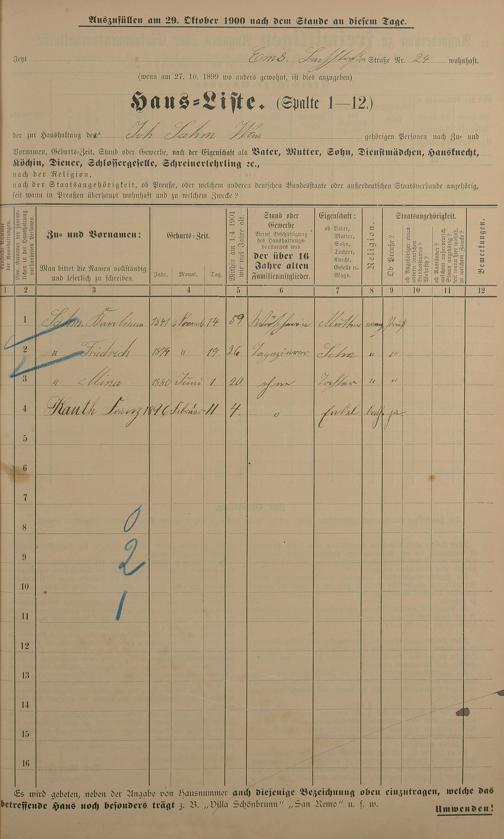 Auszufüllen am 29. Oktober 1900 nach dem Stande an diesem Tage.
Jetzt Ems, Straße Nr. 24 wohnhaft.
(wenn am 27. 10. 1899 wo anders gewohnt, ist dies anzugeben)
Haus-Liste. (Spalte 1—12.)
der zur Haushaltung de Joh Sahm Wwe gehörigen Personen nach Zu- und
Vornamen, Geburts-Zeit, Stand oder Gewerbe, nach der Eigenschaft als Vater, Mutter, Sohn, Dienstmädchen, Hausknecht,
Köchin, Diener, Schlossergeselle, Schreinerlehrling ꝛc.,
nach der Religion,
nach der Staatsangehörigkeit, ob Preuße, oder welchem anderen deutschen Bundesstaate oder außerdeutschen Staatsverbande angehörig,
seit wann in Preußen überhaupt wohnhaft und zu welchem Zwecke?
Zu- und Vornamen:
Man bittet die Namen vollständig und leserlich zu schreiben.
Geburts-Zeit.
Jahr. Monat. Tag.
Mithin am 1/4 1901 wie viel Jahre alt.
Stand oder Gewerbe
der über 16 Jahre alten Familienmitglieder.
Eigenschaft:
ob Vater, Mutter, Sohn, Tochter, Knecht, Geselle u. Magd.
Religion.
Staatsangehörigkeit.
Ob Preuße?
Bemerkungen.
1 2 3 4 5 6 7 8 9 10 11 12
1 Sahm Karolina 1841 Novemb 14 59 Mutter evang Preuß
2 " Friedrich 1874 " 19 26 Tagelöhner Sohn " "
3 " Mina 1880 Juni 1 20 ohne Tochter " "
4 Kauth Franz 1896 Februar 11 4. " Enkel kath ja
5
6
7
8 0
9 2
10
11 1
12
13
14
15
16
Es wird gebeten, neben der Angabe von Hausnummer auch diejenige Bezeichnung oben einzutragen, welche das
betreffende Haus noch besonders trägt z. B. „Villa Schönbrunn" „San Remo" u. s. w.
Umwenden!